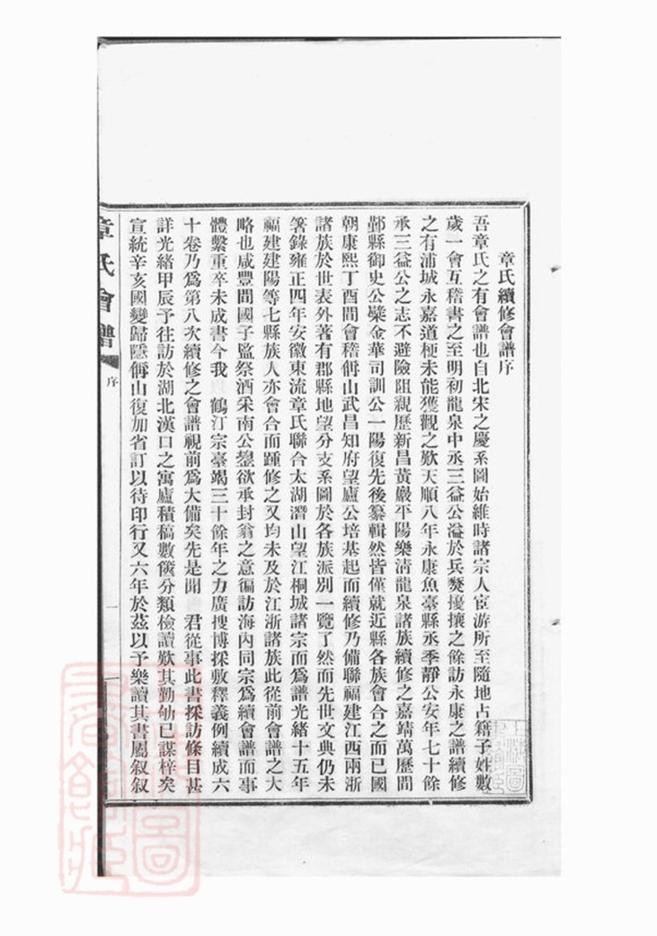 章氏續修會譜序
吾章氏之有會譜也自北宋之慶系圖始維時諸宗人宦游所至隨地占籍子姓數
歲一會互稽書之至明初龍泉中丞三益公溢於兵燹擾攘之餘訪永康之譜續修
之有浦城永嘉道梗未能獲觀之歎天順八年永康魚臺縣丞季靜公安年七十餘
承三益公之志不避險阻親歷新昌黃巖平陽樂清龍泉諸族續修之嘉靖萬歷間
鄞縣御史公檗金華司訓公一陽復先後纂輯然皆僅就近縣各族會合之而已國
朝康熙丁酉間會稽偁山武昌知府望廬公培基起而續修乃備聯福建江西兩浙
諸族於世表外著有郡縣地望分支系圖於各族派別一覽了然而先世文典仍未
箸錄雍正四年安徽東流章氏聯合太湖潛山望江桐城諸宗而為譜光緒十五年
福建建陽等七縣族人亦會合而踵修之又均未及於江浙諸族此從前會譜之大
略也咸豐間國子監祭酒采南公鋆欲承封翁之意徧訪海內同宗為續會譜而事
體繫重卒未成書今我 鶴汀宗臺竭三十餘年之力廣搜博採敷釋義例續成六
十卷乃為第八次續修之會譜視前為大備矣先是聞 君從事此書採訪條目甚
詳光緒甲辰予往訪於湖北漢口之寓廬積稿數篋分類檢讀歎其勤劬已謀梓矣
宣統辛亥國變歸隱偁山復加省訂以待印行又六年於茲以予樂讀其書屬叙叙
章氏會譜
序
一